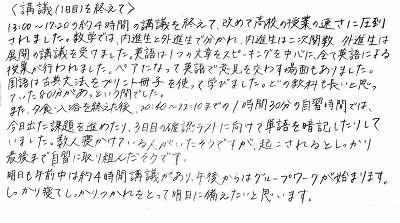 〈講議（1日目）を終えて〉
13:00〜17:20の約4時間の講議を終えて、改めて高校の授業の速さに圧倒
されました。数学では、内進生と外進生で分かれ、内進生は二次関数、外進生は
展開の講議を受けました。英語は1つの文章をスピーキングを中心に、全て英語による
授業が行われました。ペアになって英語で意見を交わす場面もありました。
国語は古典文法をプリント冊子を使って学びました。どの教科も長いと思っ
ていた80分があっという間でした。
また、夕食・入浴を終えた後、20:40〜22:10までの1時間30分の自習時間では、
今日出た課題を進めたり、3日目の確認テストに向けて単語を暗記したりして
いました。数人寝かけている人がいたそうですが、起こされるとしっかり
最後まで自習に取り組んだそうです。
明日も午前中は約4時間講議があり、午後からはグループワークが始まります。
しっかり寝てしっかりつかれをとって明日に備えたいと思います。